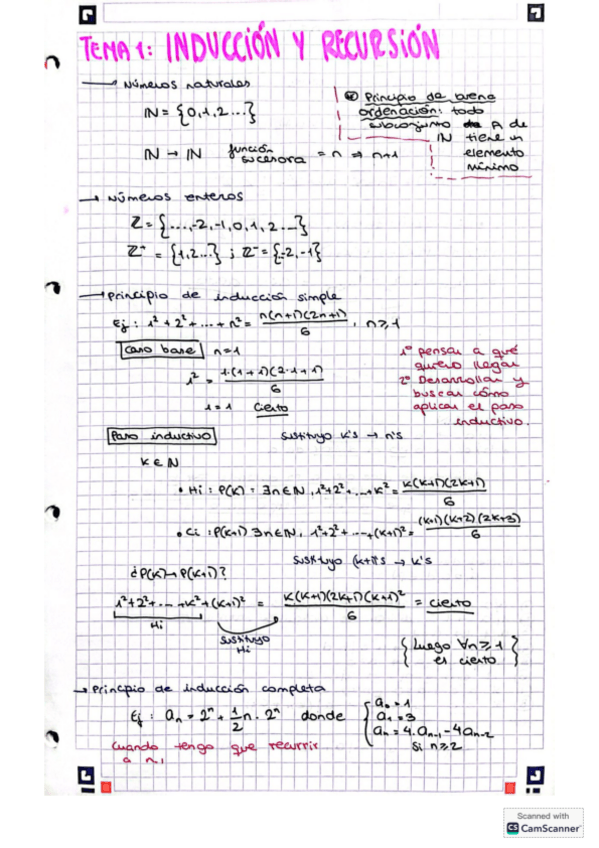 TEMA 1: INDUCCIÓN Y RECURSIÓN
→ Números naturales
IN = {0,1,2...}
IN → IN función sucesora = n ⇒ n+1
* Principio de buena
ordenación: todo
subconjunto de A de
IN tiene un
elemento
mínimo
→ Números enteros
Z = {...,-2,-1,0,1,2...}
Z⁺ = {1,2...} ; Z⁻ = {-2,-1}
→ Principio de inducción simple
Ej: 1² + 2² + ... + n² = n(n+1)(2n+1)/6, n≥1
Caso base n=1
1² = 1·(1+1)(2·1+1)/6
1=1 Cierto
1º pensar a qué
quiero llegar
2º Desarrollar y
buscar cómo
aplicar el paso
inductivo.
Paso inductivo Sustituyo k's → n's
K ∈ IN
• Hi: P(K) = ∃n∈IN, 1²+2²+...+K² = K(K+1)(2K+1)/6
• Ci: P(K+1) ∃n∈IN, 1²+2²+...+(K+1)² = (K+1)(K+2)(2K+3)/6
Sustituyo (k+1)'s → k's
¿P(K)→P(K+1)?
1²+2²+...+K²+(K+1)² = K(K+1)(2K+1)(K+1)²/6 = cierto
Hi
Sustituyo
Hi
{Luego ∀n≥1
es cierto}
→ Principio de inducción completa
Ej: aₙ = 2ⁿ + 1/2 n · 2ⁿ donde
{a₀ = 1
a₁ = 3
aₙ = 4·aₙ₋₁ - 4aₙ₋₂
Si n≥2
Cuando tengo que recurrir
a n,
Scanned with
CS CamScanner